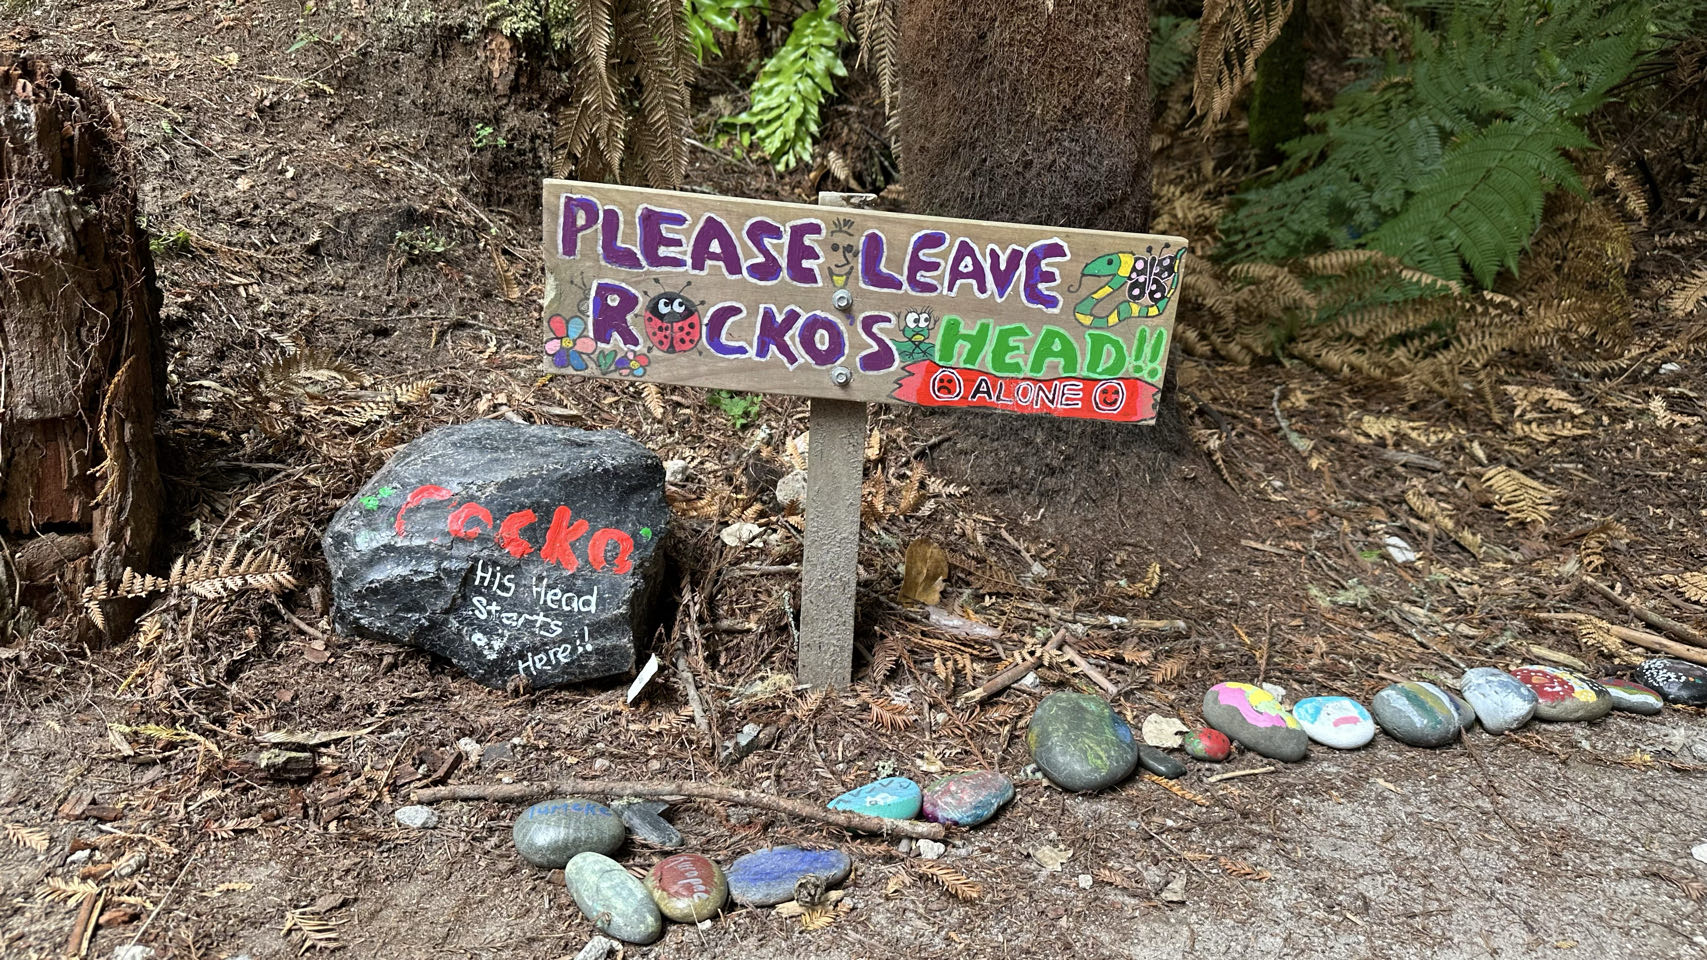 PLEASE LEAVE
ROCKO'S HEAD!!
ALONE
Rocko
His Head
Starts
Here!!